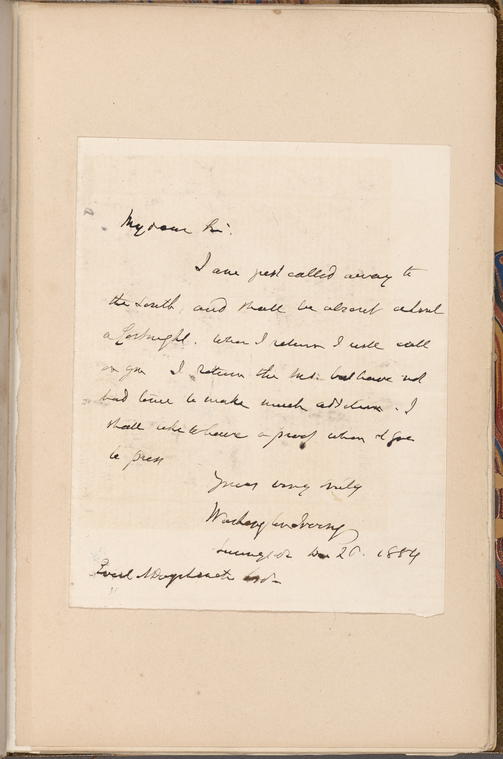 My dear Sir.
I am just called away to
the South, and shall be absent about
a fortnight. When I return I will call
on you I return the Ms. but have not
had time to make much addition. I
shall like to have a proof when it goes
to press
Yours very truly
Washington Irving
Dec 20. 1854
Evert A Duyckinck Esq